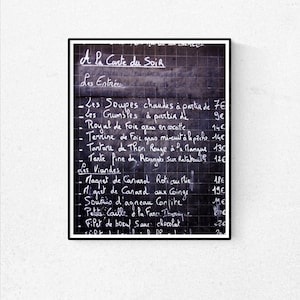 A la Carte du Soir
Les Entrées
- Les Soupes chaudes à partir de 7€
- Les Crumbles à partir de 9€
- Royal de Foie gras en cocotte 14€
- Terrine de Foie gras mi-cuit à la pêche 14€
- Tartare de Thon Rouge à la Mangue 13€
- Tarte fine de Rougets sur Ratatouille 12€
Les Viandes
- Magret de Canard Roti au Miel 18€
- Magret de Canard aux Coings 19€
- Souris d'agneau Confite
- Petite Caille à la Farce
- Filet de boeuf Sauce chocolat